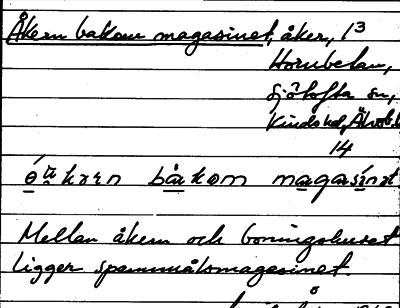 Åkern bakom magasinet, åker, 13
Hornbetan,
Sjötofta sn,
Kinds hd, Älvsb. l.
14
Mellan åkern och boningshuset
ligger spannmålsmagasinet.